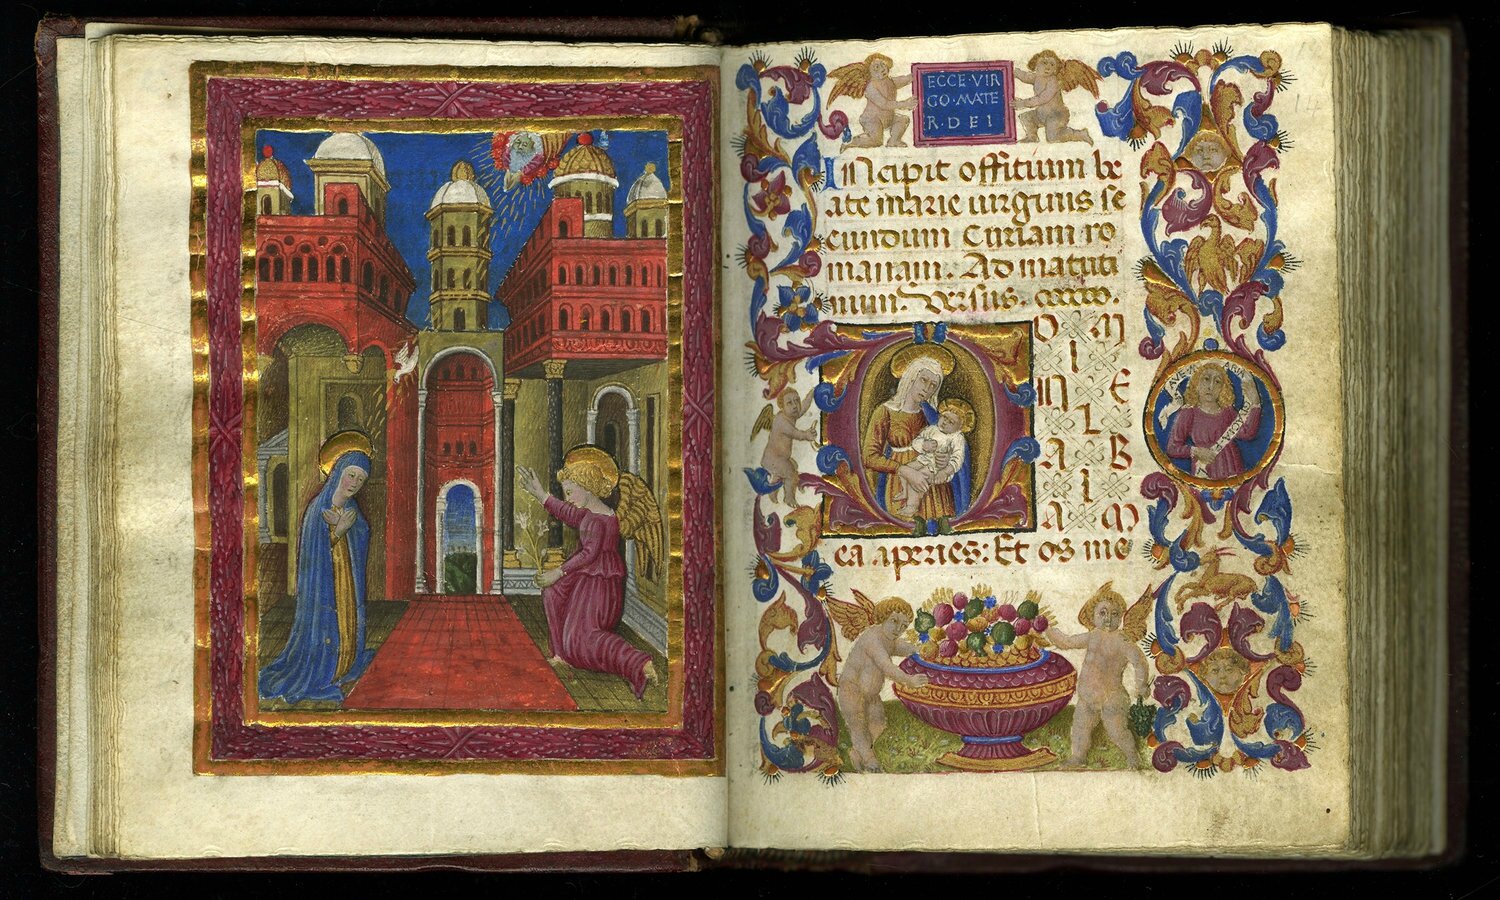 ECCE·VIR
GO·MATE
R·DEI
INcipit offitium be
ate marie uirginis se
cundum Curiam ro
manam. Ad matuti
num. Versus.
DOM
I
NE
L
AB
I
AM
ea aperies: Et os me
AVE MARIA
GRACIA